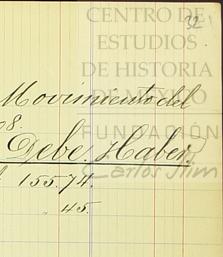 CENTRO DE
32
ESTUDIOS
DE HISTORIA
DE MÉXICO
Movimiento del
08.
FUNDACIÓN
Debe. Haber.
Carlos Slim
155.74.
„ 45.